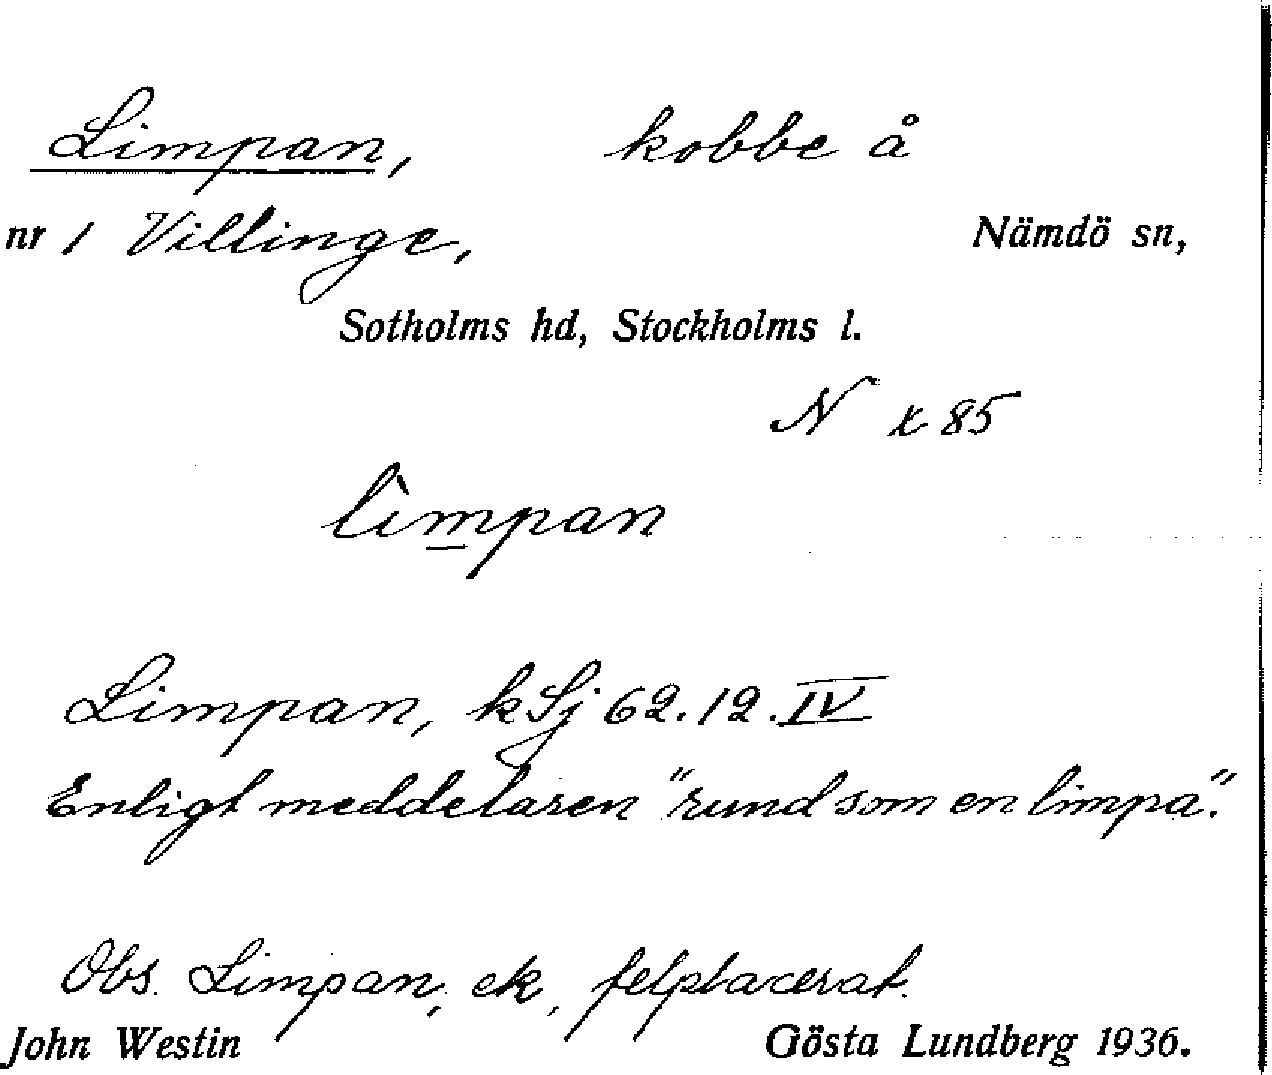 Limpan, kobbe å
nr 1 Villinge, Nämdö sn,
Sotholms hd, Stockholms l.
N x 85
lìmpan
Limpan, kSj 62.12.IV
Enligt meddelaren "rund som en limpa".
Obs. Limpan, ek, felplacerat.
John Westin Gösta Lundberg 1936.